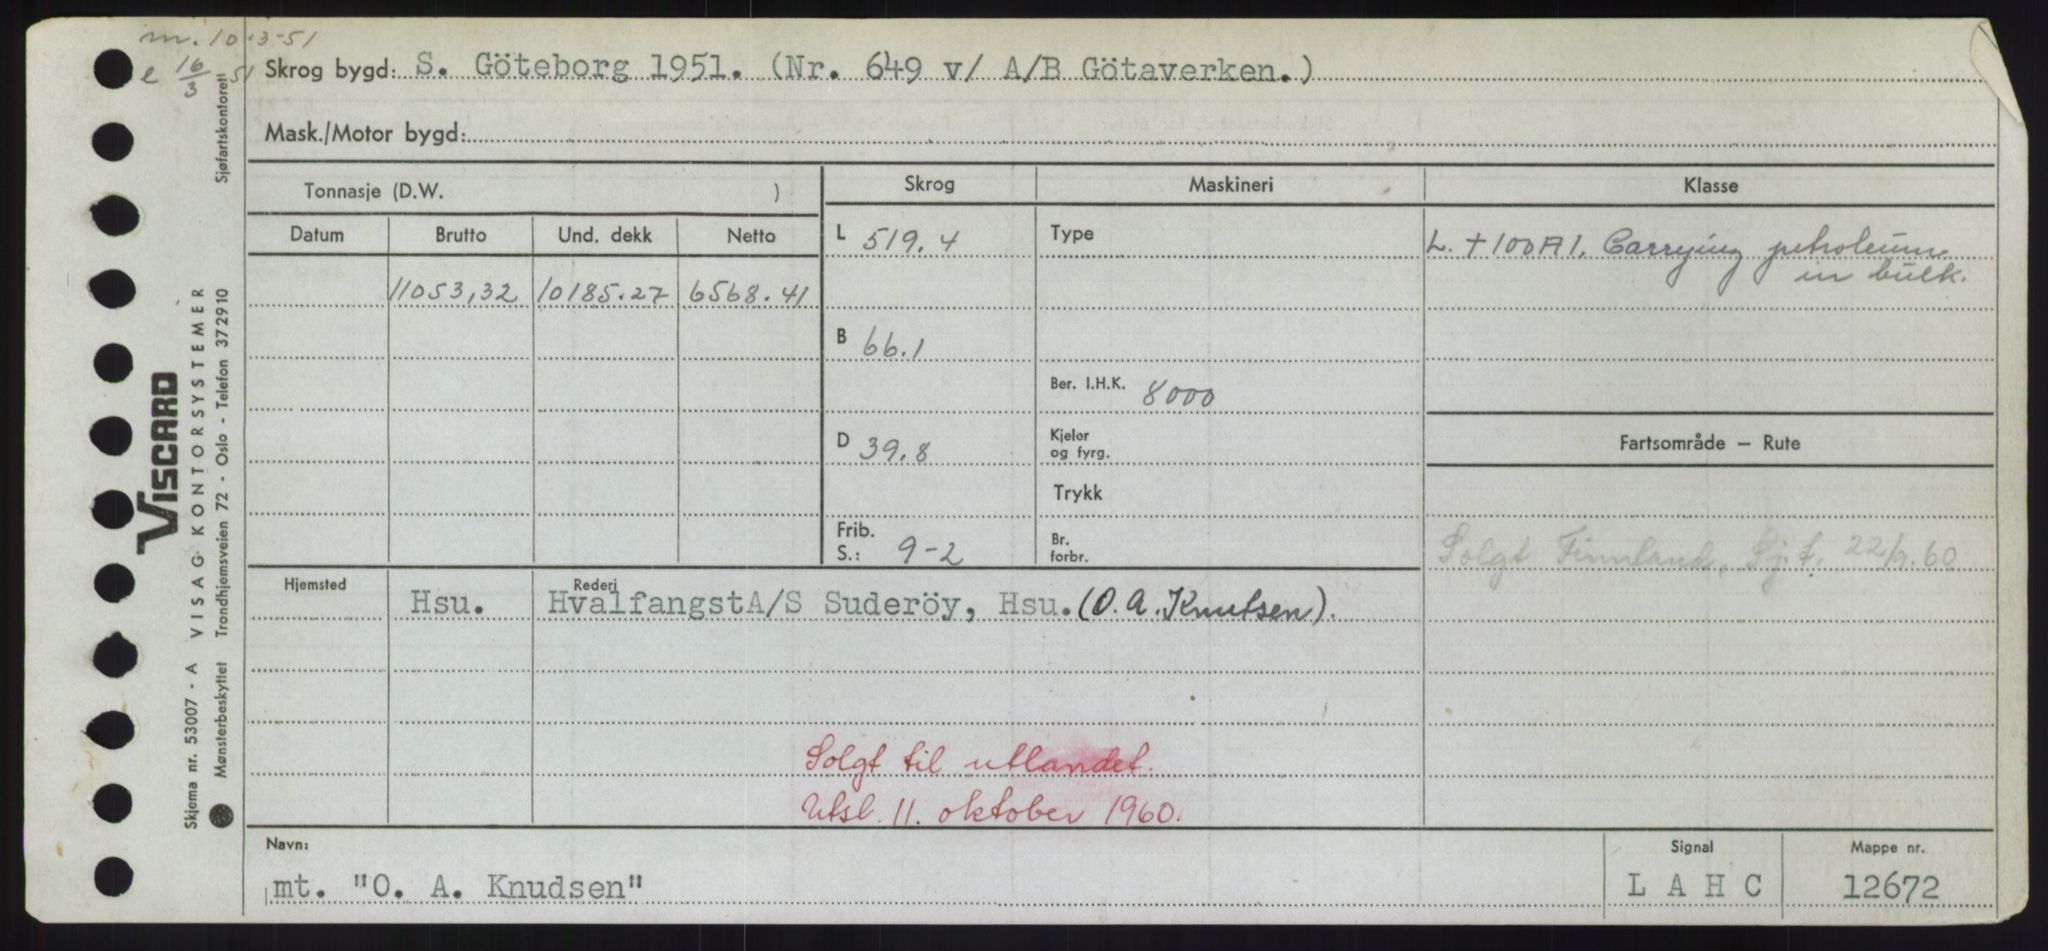 m. 10-3-51
e 16/3 51
Skrog bygd: S. Göteborg 1951. (Nr. 649 v/ A/B Götaverken.)
Mask./Motor bygd:
Tonnasje (D.W. )
Skrog
Maskineri
Klasse
Datum
Brutto
Und. dekk
Netto
L 519.4
Type
L. + 100 A 1. Carrying petroleum
in bulk.
11053,32 10185.27 6568.41
B 66.1
Ber. I.H.K. 8000
D 39.8
Kjeler
og fyrg.
Fartsområde — Rute
Trykk
Frib.
S.: 9-2
Br.
forbr.
Solgt Finnland, Sj.f. 22/9.60
Hjemsted
Rederi
Hsu. HvalfangstA/S Suderöy, Hsu. (O. A. Knutsen).
Solgt til utlandet.
Utsl. 11. oktober 1960.
Navn:
mt. "O. A. Knudsen"
Signal
L A H C
Mappe nr.
12672
VISCARD
VISAG KONTORSYSTEMER
Sjøfartskontoret
Skjema nr. 53007 - A
Mønsterbeskyttet Trondhjemsveien 72 - Oslo - Telefon 372910